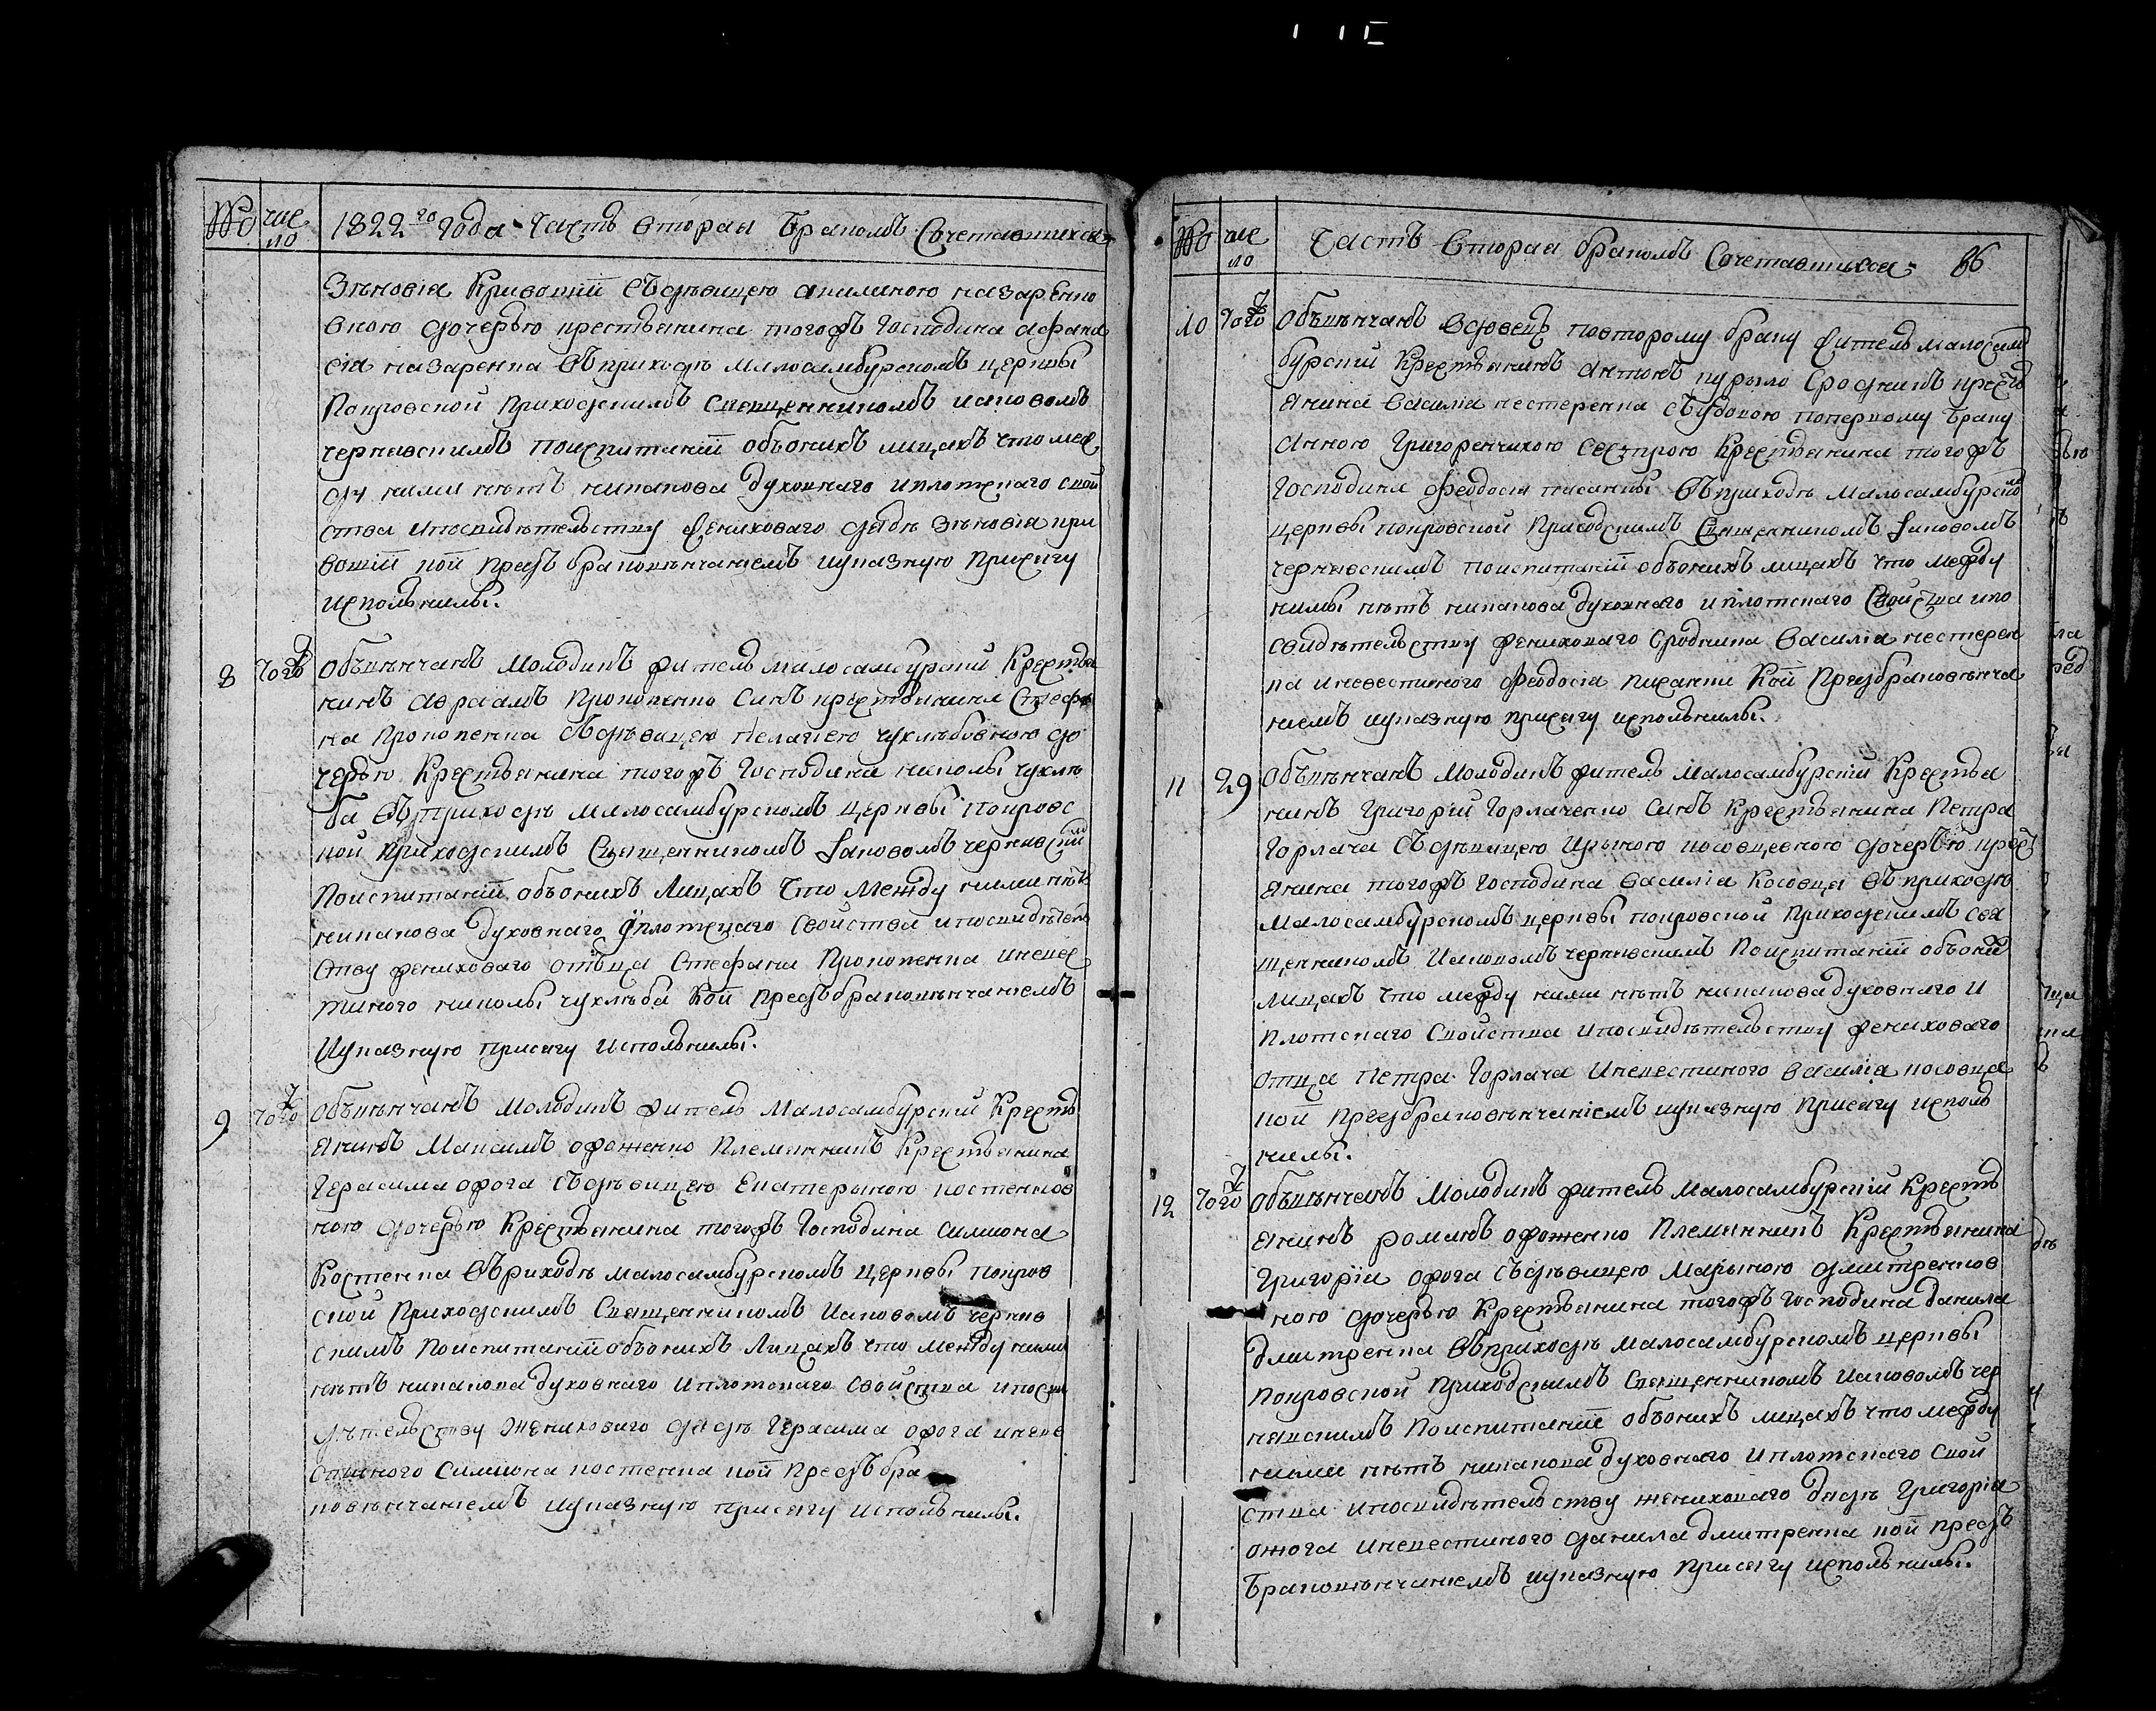 № чис
ло
1822го Года Часть вторая Бракомъ Сочетавшихся
Зѣновія Кривошіи Съдѣвицею акилиною назаренко
вною дочерью крестьянина тогожъ Господина афана
сія назаренка Въприходѣ малосамбурскомъ церкви
Покровской Приходскимъ Священникомъ иаковомъ
чернявскимъ поиспитаніи объонихъ лицахъ что меж
ду ними нѣтъ никакова духовнаго иплотскаго свой
ства ипосвидѣтельству Жениховаго дядѣ Зѣновія кри
вошіи кои предъ браковѣнчаніемъ иуказную присягу
испольнилы.
8 Тогожъ Объвѣнчанъ молодикъ житель малосамбурскій Крестья
нинъ авраамъ Прокопенко Синъ крестьянина Стефа
на Прокопенка Съдѣвицею пелагіею чухлѣбовною до
черью Крестьянина тогожъ Господина николы чухлѣ
ба Въприходѣ малосамбурскомъ церкви покровс
кой приходскимъ Священникомъ Іаковомъ чернявским
Поиспитаніи объонихъ Лицахъ Что между ними нѣтъ
никакова духовнаго иплотскаго свойства ипосвидѣтель
ству жениховаго отъца Стефана Прокопенка иневес
тиного николы чухлѣба Кои предъбраковѣнчаніемъ
Иуказную присягу исполнилы.
9 Тогожъ Объвѣнчанъ молодикъ житель Малосамбурскій Кресть
янинъ Максимъ ожоженко Племянникъ Крестьянина
Герасима ожога Съдѣвицею Екатериною костенков
ною дочерью Крестьянина тогожъ Господина симиона
Костенка Въприходѣ малосамбурскомъ церкви покров
ской Приходскимъ Священникомъ Иаковомъ черняв
скимъ Поиспитаніи объонихъ Лицахъ что между ними
нѣтъ никакова духовнаго иплотскаго свойства ипосви
дѣтельству жениховаго дядѣ Герасима ожога иневе
стиного Симиона костенка кои предъбра
ковѣнчаніемъ иуказную присягу исполнилы.
№ чис
ло
Часть вторая бракомъ Сочетавшихся 86
10 Тогожъ Объвѣнчанъ вдовецъ повторому браку житель малосам
бурскій Крестьянинъ антонъ курыло Сродникъ кресть
янина василія нестеренка съвдовою поперьвому браку
анною Григоренчихою сестрою Крестьянина тогожъ
Господина Феодосія писанки Въприходѣ малосамбурском
церкви покровской Приходскимъ Священникомъ Іаковомъ
чернявскимъ поиспитаніи объонихъ лицахъ что между
нимы нѣтъ никакова духовнаго иплотскаго Свойства ипо
свидѣтельству жениховаго сродника василія нестерен
ка иневестиного Феодосія писанки Кои Предъбраковѣнча
ніемъ иуказную присягу исполнилы.
11 29 Объвѣнчанъ Молодикъ житель Малосамбурскій Крестья
нинъ Григорій Горлаченко Синъ Крестьянина Петра
Горлача Съдѣвицею Ирыною косовцевною дочерью крест
янина тогожъ Господина василія Косовца въприходѣ
малосамбурскомъ церкви покровской Приходскимъ свя
щенникомъ Иаковомъ чернявскимъ Поиспитаніи объоних
Лицахъ что между ними нѣтъ никакова духовнаго И
Плотскаго Свойства ипосвидѣтельству жениховаго
отца Петра Горлача Иневестиного василія косовца
кои предъбраковѣнчаніемъ иуказную присягу исполь
нилы.
12 Тогожъ Объвѣнчанъ Молодикъ житель малосамбурскій Кресть
янинъ романъ ожоженко Племянникъ Крестьянина
Григорія ожога съдѣвицею марьиною дмитренков
ною дочерью Крестьянина тогожъ господина данила
дмитренка въприходѣ малосамбурскомъ церкви
покровской приходскимъ Священникомъ Иаковомъ чер
нявскимъ Поиспитаніи объонихъ лицахъ что между
ними нѣтъ никакова духовнаго Иплотскаго свой
ства ипосвидѣтельству жениховаго дядѣ Григорія
ожога иневестиного данила дмитренка кои предъ
браковѣнчаніемъ иуказную Присягу исполнилы.